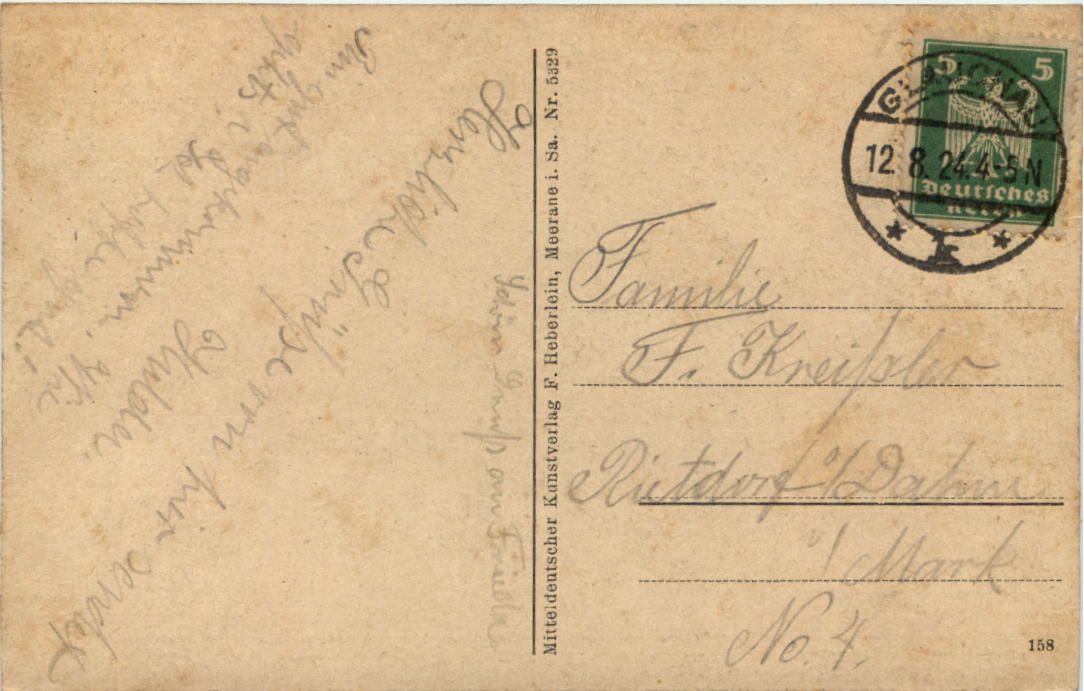 Herzliche Grüße von hier sendet
Hulda.
Bin gut
angekommen.
hoffe
Ihr
Mitteldeutscher Kunstverlag F. Heberlein, Meerane i. Sa. Nr. 5329
5 5
Deutsches
Reich
GLAUCHAU
12.8.24.4-5N
* *
Familie
F. Kreißler
Rietdorf b/Dahme
i/Mark
No. 4.
158